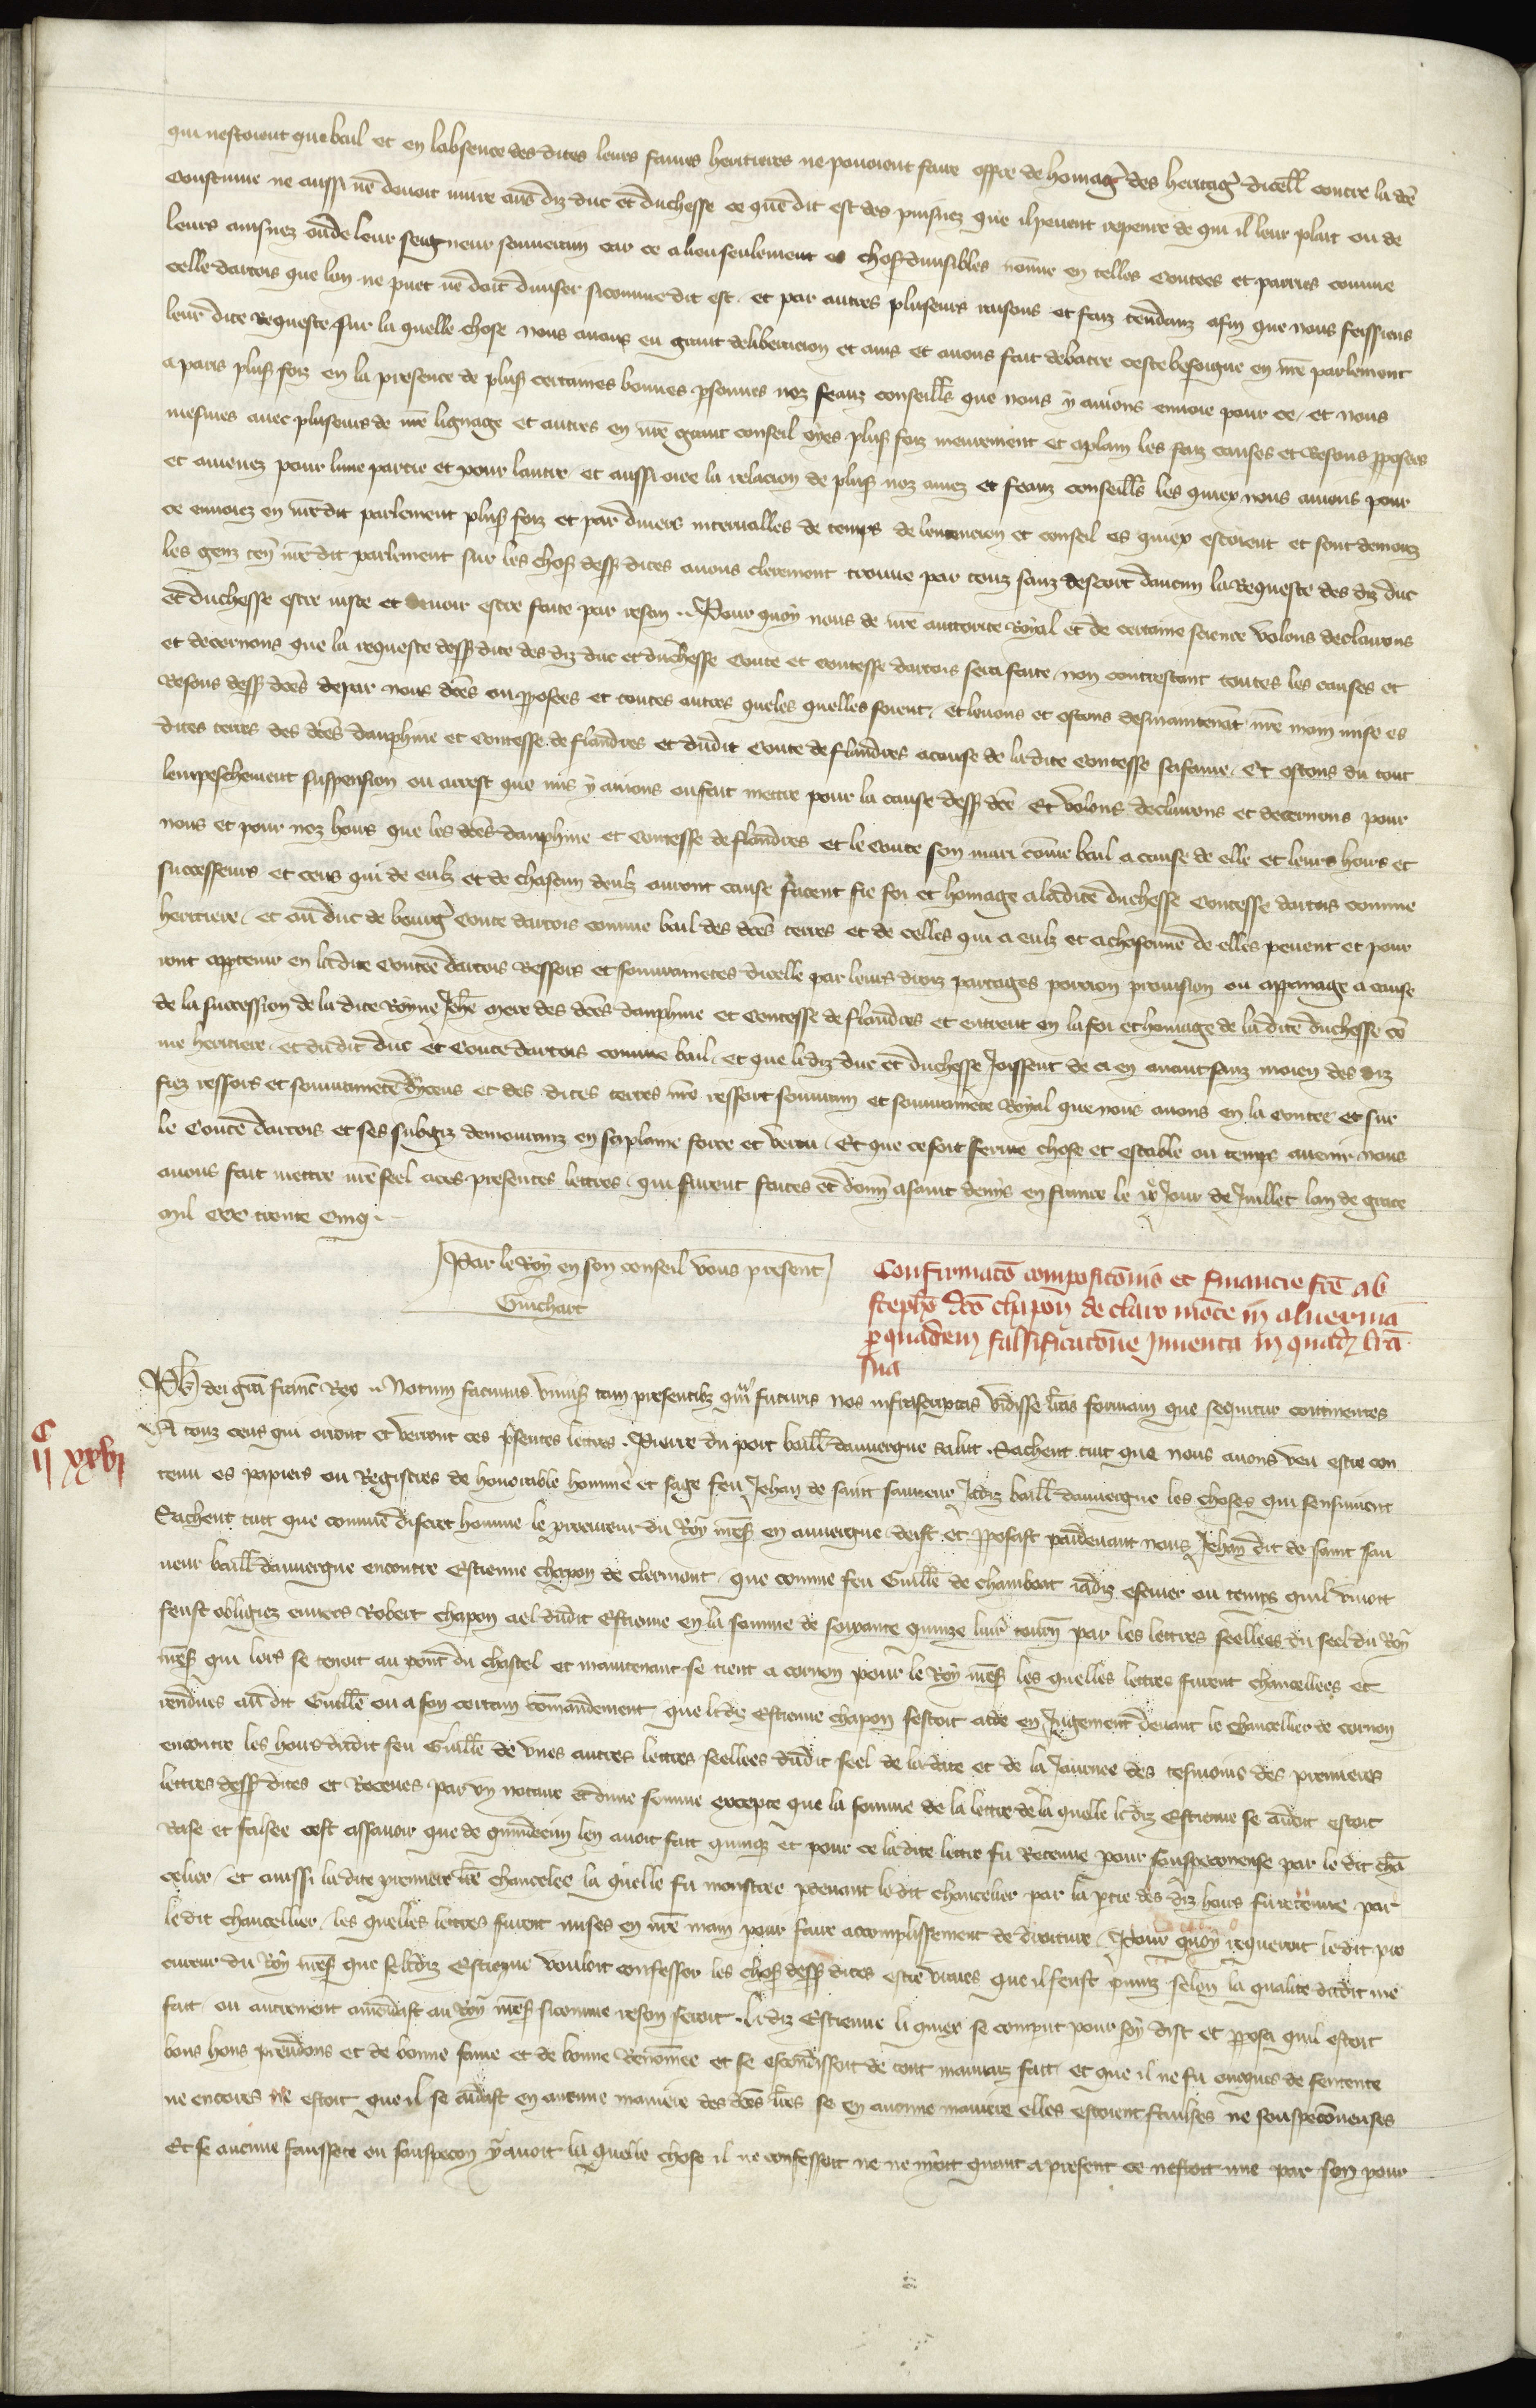 qui nestoient que bail et en labsence des dites leurs fames heritieres ne pouoient faire offre de homage des heritages dicelles contre la dce
coustume ne aussi ne deuoit nuire aus diz duc et duchesse ce que dit est des puisnez que il peuent reprenre de qui il leur plait ou de
leurs ainsnez ou de leur seigneur souuerain car ce a lieu seulement es choses diuisibles non mie en telles Contees et parties comme
celle dartois que lon ne puet ne doit diuiser si comme dit est. et par autres pluseurs raisons et faiz tendanz afin que nous feissiens
leur dite Requeste. sur la quelle chose nous auons eu grant deliberacion et auis et auons fait debatre ceste besoigne en nre parlement
a paris plus foiz en la presence de plus certaines bonnes psonnes noz feauz conseill que nous y auions enuoie pour ce, et nous
mesmes auec pluseurs de nre lignage et autres en nre grant conseil oyes plus foiz meurement et aplain les faiz causes et Resons pposees
et amenez pour lune partie et pour lautre, et aussi oiee la relacion de plus noz amez et feauz conseill les quiex nous auions pour
ce enuoiez en nredit parlement plus foiz et par diuers interualles de temps de lentencion et conseil es quiex estoient et sont demorez
les genz ten nredit parlement sur les chos dess dites auons clerement trouue par touz sanz descort daucun la Requeste des diz duc
et duchesse estre iuste et deuoir estre faite par reson. Pour quoy nous de nre auctorite Royal et de certaine science volons declairons
et decernons que la requeste dess dite des diz duc et duchesse Conte et Contesse dartois sera faite, non contrestant toutes les causes et
Resons dess dces depar nous dces ou pposees et toutes autres queles quelles soient, et leuons et ostons desmaintenat nre main mise es
dites terres des dces dauphine et Contesse de flandres et dudit Conte de flandres a cause de ladite Contesse sa fame. Et ostons du tout
lempeschement suspension ou arrest que mis y auions ou fait mettre pour la cause dess dce, Et volons declairons et decernons pour
nous et pour noz hoirs que les dces dauphine et Contesse de flandres et le Conte son mari come bail a cause de elle et leurs hoirs et
successeurs et ceus qui de eulz et de chascun deulz auront cause facent fie foi et homage a ladite duchesse Contesse dartois comme
heritiere, et au duc de bourg Conte dartois comme bail des dces terres et de celles qui a eulz et a chascune de elles peuent et pour
ront apptenir en ladite Contee dartois Ressors et souurainetes dicelle par leurs droiz partages porcion prouision ou appanage a cause
de la succession de la dite Royne Jehe mere des dces dauphine et Contesse de flandres et entrent en la foi et homage de la dite duchesse co
me heritiere, et dudit duc et Conte dartois comme bail, et que lediz duc et duchesse Joissent de ci en auant sanz moien des diz
fiez ressors et souurainete dyceus et des dites terres nre ressort souurain et souurainete Royal que nous auons en la Contee et sur
le Conte dartois et ses subgiz demouranz en sa plaine force et vertu. Et que ce soit ferme chose et estable ou temps auenir nous
auons fait mettre nre seel a ces presentes lettres, qui furent faites et donn a saint denys en france le ix Jour de Juillet lan de grace
mil CCC trente cinq.
Par le Roy en son conseil vous present
Guichart
Confirmaco composicionis et financie fce ab
stepho dco chapon de claro monte in aluernia
p quadem falsificacione Inuenta in quadz lra
sua
Phs dei gra franc Rex. Notum facimus vniuss tam presentibz qm futuris nos infrascriptas vidisse lras formam que sequitur continentes
A touz ceus qui orront et verront ces psentes lettres. Pierre du port baill dauuergne salut. Sachent tuit que nous auons veu estre con
tenu es papiers ou Registres de honorable homme et sage feu Jehan de saint sauueur Jadiz baill dauuergne les choses qui sensuiuent
Sachent tuit que comme discret homme le procureur du Roy nres en auuergne deist et pposast pardeuant nous Jehan dit de saint sau
ueur baill dauuergne encontre Estienne chapon de clermont, que comme feu Guille de chambort iadiz escuier ou temps quil viuoit
feust obligiez enuers Robert chapon ael dudit Estienne en la somme de soixante quinze liur tourn par les lettres seellees du seel du Roy
nres qui lors se tenoit au pont du chastel et maintenant se tient a cornon pour le Roy nres les quelles lettres furent chancellees et
rendues au dit Guille ou a son certain comandement que lediz Estienne chapon sestoit aide en Jugement deuant le chancellier de cornon
encontre les hoirs dudit feu Guille de vnes autres lettres seellees dudit seel de la date et de la Journee des tesmoins des premieres
lettres dess dites et Receues par vn notaire et dune somme excepte que la somme de la lettre de la quelle lediz Estienne se aidoit estoit
Rase et falsee cest assauoir que de quindecim len auoit fait quinq et pour ce ladite lettre fu Retenue pour souspeconeuse par le dit cha
celier, et aussi ladite premiere lre chancelee la quelle fu monstree pdeuant ledit chancelier par la ptie des diz hoirs fu retenue par
le dit chancellier, les quelles lettres furent mises en nre main pour faire accomplissement de droiture. Pour quoy requeroit ledit pro
cureur du Roy nres que se lediz Estienne vouloit confesser les chos dess dites estre vraies que il feust puniz selon la qualite dudit me
fait ou autrement amendast au Roy nres sicomme reson seroit. lediz Estienne li quiex se comput pour soy dist et pposa quil estoit
bons hons preudons et de bonne fame et de bonne Renomee et se escondissoit de tout mauuaiz fait et que il ne fu onques de sentente
ne encores ne estoit que il se aidast en aucune maniere des dces lres se en aucune maniere elles estoient faulses ne souspeconeuses
Et se aucune faussete ou souspecon y auoit la quelle chose il ne confessoit ne ne nioit quant a present ce nestoit mie par son pour
C
ii xxvi